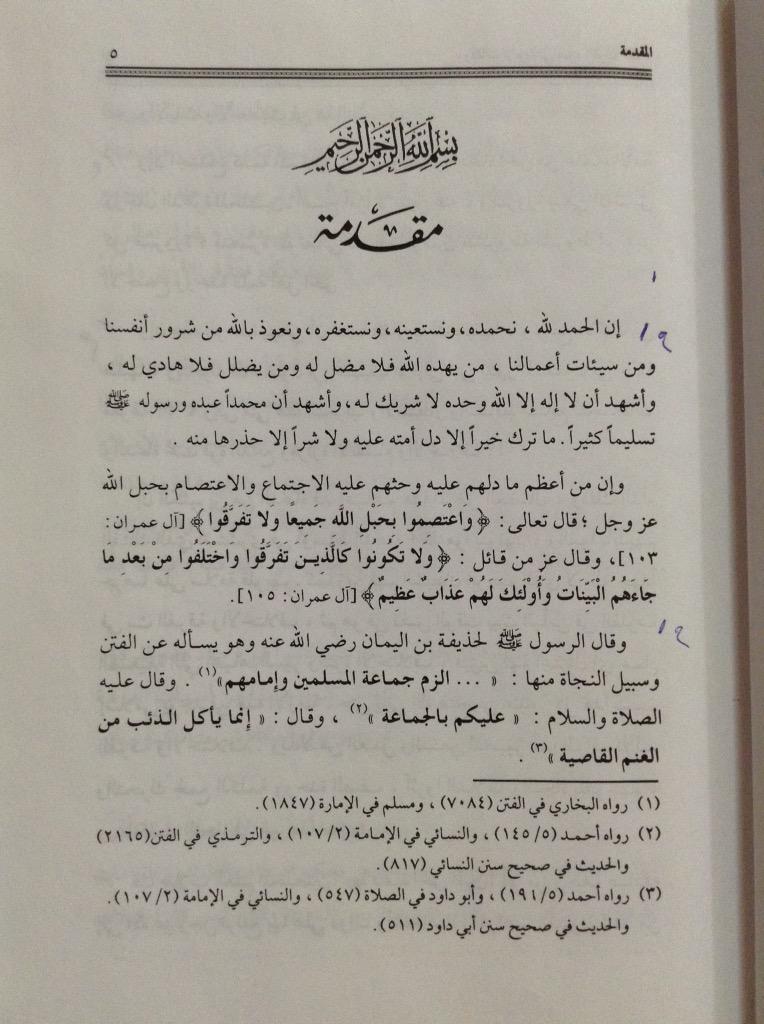 المقدمة ٥
بسم الله الرحمن الرحيم
مقدمة
١
١٩
إن الحمد لله ، نحمده، ونستعينه، ونستغفره، ونعوذ بالله من شرور أنفسنا
ومن سيئات أعمالنا ، من يهده الله فلا مضل له ومن يضلل فلا هادي له ،
وأشهد أن لا إله إلا الله وحده لا شريك له، وأشهد أن محمداً عبده ورسوله ﷺ
تسليماً كثيراً. ما ترك خيراً إلا دل أمته عليه ولا شراً إلا حذرها منه .
وإن من أعظم ما دلهم عليه وحثهم عليه الاجتماع والاعتصام بحبل الله
عز وجل ؛ قال تعالى: ﴿ وَاعْتَصِمُوا بِحَبْلِ اللَّهِ جَمِيعًا وَلا تَفَرَّقُوا ﴾ [آل عمران:
١٠٣]، وقال عز من قائل : ﴿ وَلا تَكُونُوا كَالَّذِينَ تَفَرَّقُوا وَاخْتَلَفُوا مِنْ بَعْدِ مَا
جَاءَهُمُ الْبَيِّنَاتُ وَأُوْلَئِكَ لَهُمْ عَذَابٌ عَظِيمٌ ﴾ [آل عمران: ١٠٥].
١٩
وقال الرسول ﷺ لحذيفة بن اليمان رضي الله عنه وهو يسأله عن الفتن
وسبيل النجاة منها : « ... الزم جماعة المسلمين وإمامهم»(١) . وقال عليه
الصلاة والسلام : « عليكم بالجماعة »(٢) ، وقال : « إنما يأكل الذئب من
الغنم القاصية »(٣) .
(١) رواه البخاري في الفتن (٧٠٨٤) ، ومسلم في الإمارة (١٨٤٧).
(٢) رواه أحمد (١٤٥/٥) ، والنسائي في الإمامة (١٠٧/٢) ، والترمذي في الفتن(٢١٦٥)
والحديث في صحيح سنن النسائي (٨١٧).
(٣) رواه أحمد (١٩٦/٥) ، وأبو داود في الصلاة (٥٤٧) ، والنسائي في الإمامة (١٠٧/٢).
والحديث في صحيح سنن أبي داود (٥١١).